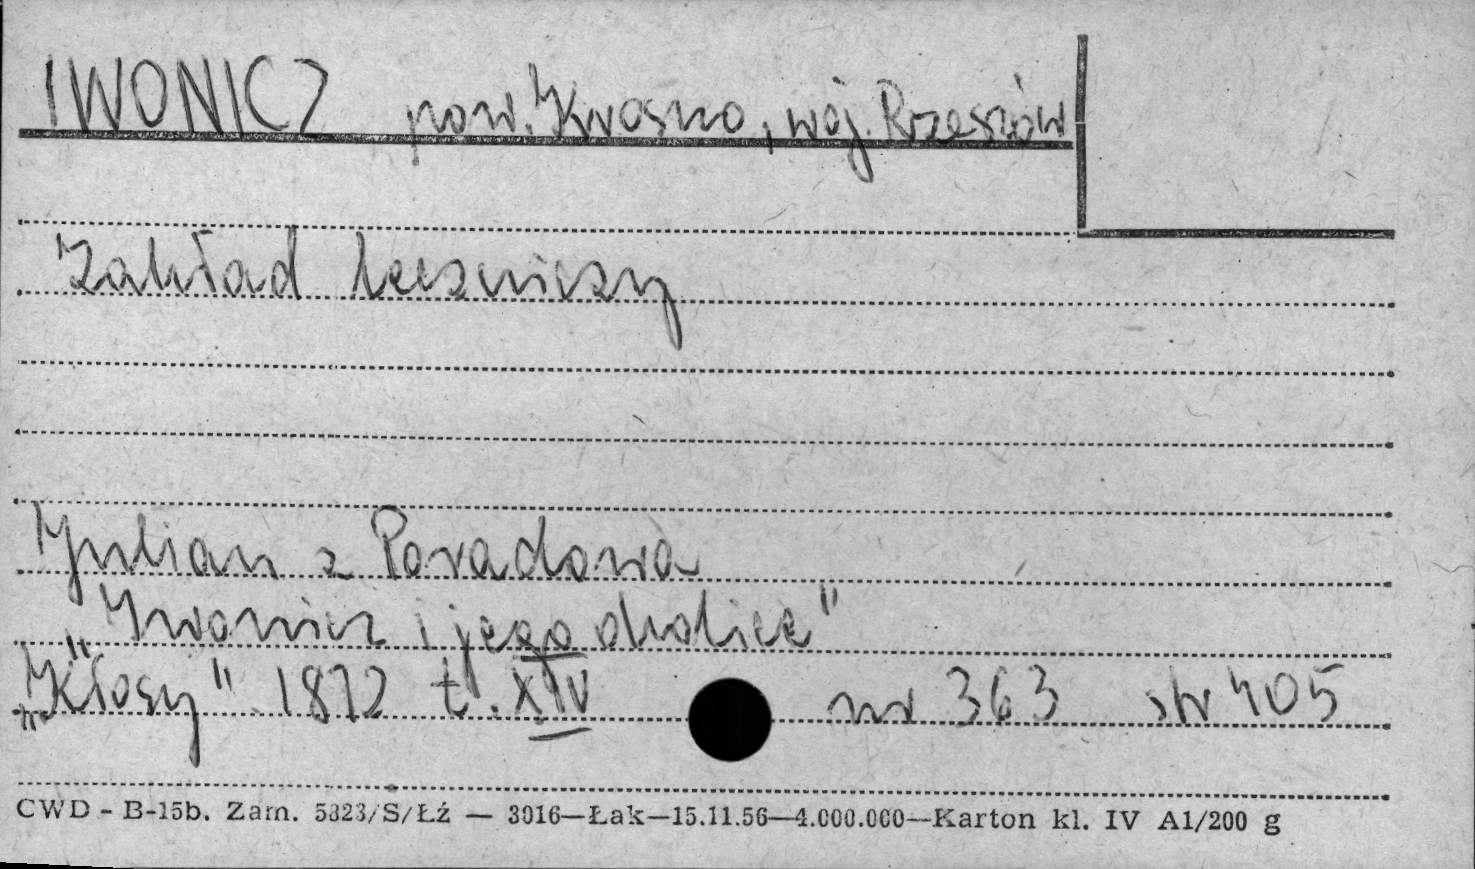 IWONICZ pow. Krosno, woj. Rzeszów
Zakład leczniczy
Julian z Poradowa
"Iwonicz i jego okolice"
„Kłosy" 1872 t. XIV nr 363 str 405
CWD - B-15b. Zam. 5323/S/Łź — 3016—Łak—15.11.56—4.000.000—Karton kl. IV A1/200 g